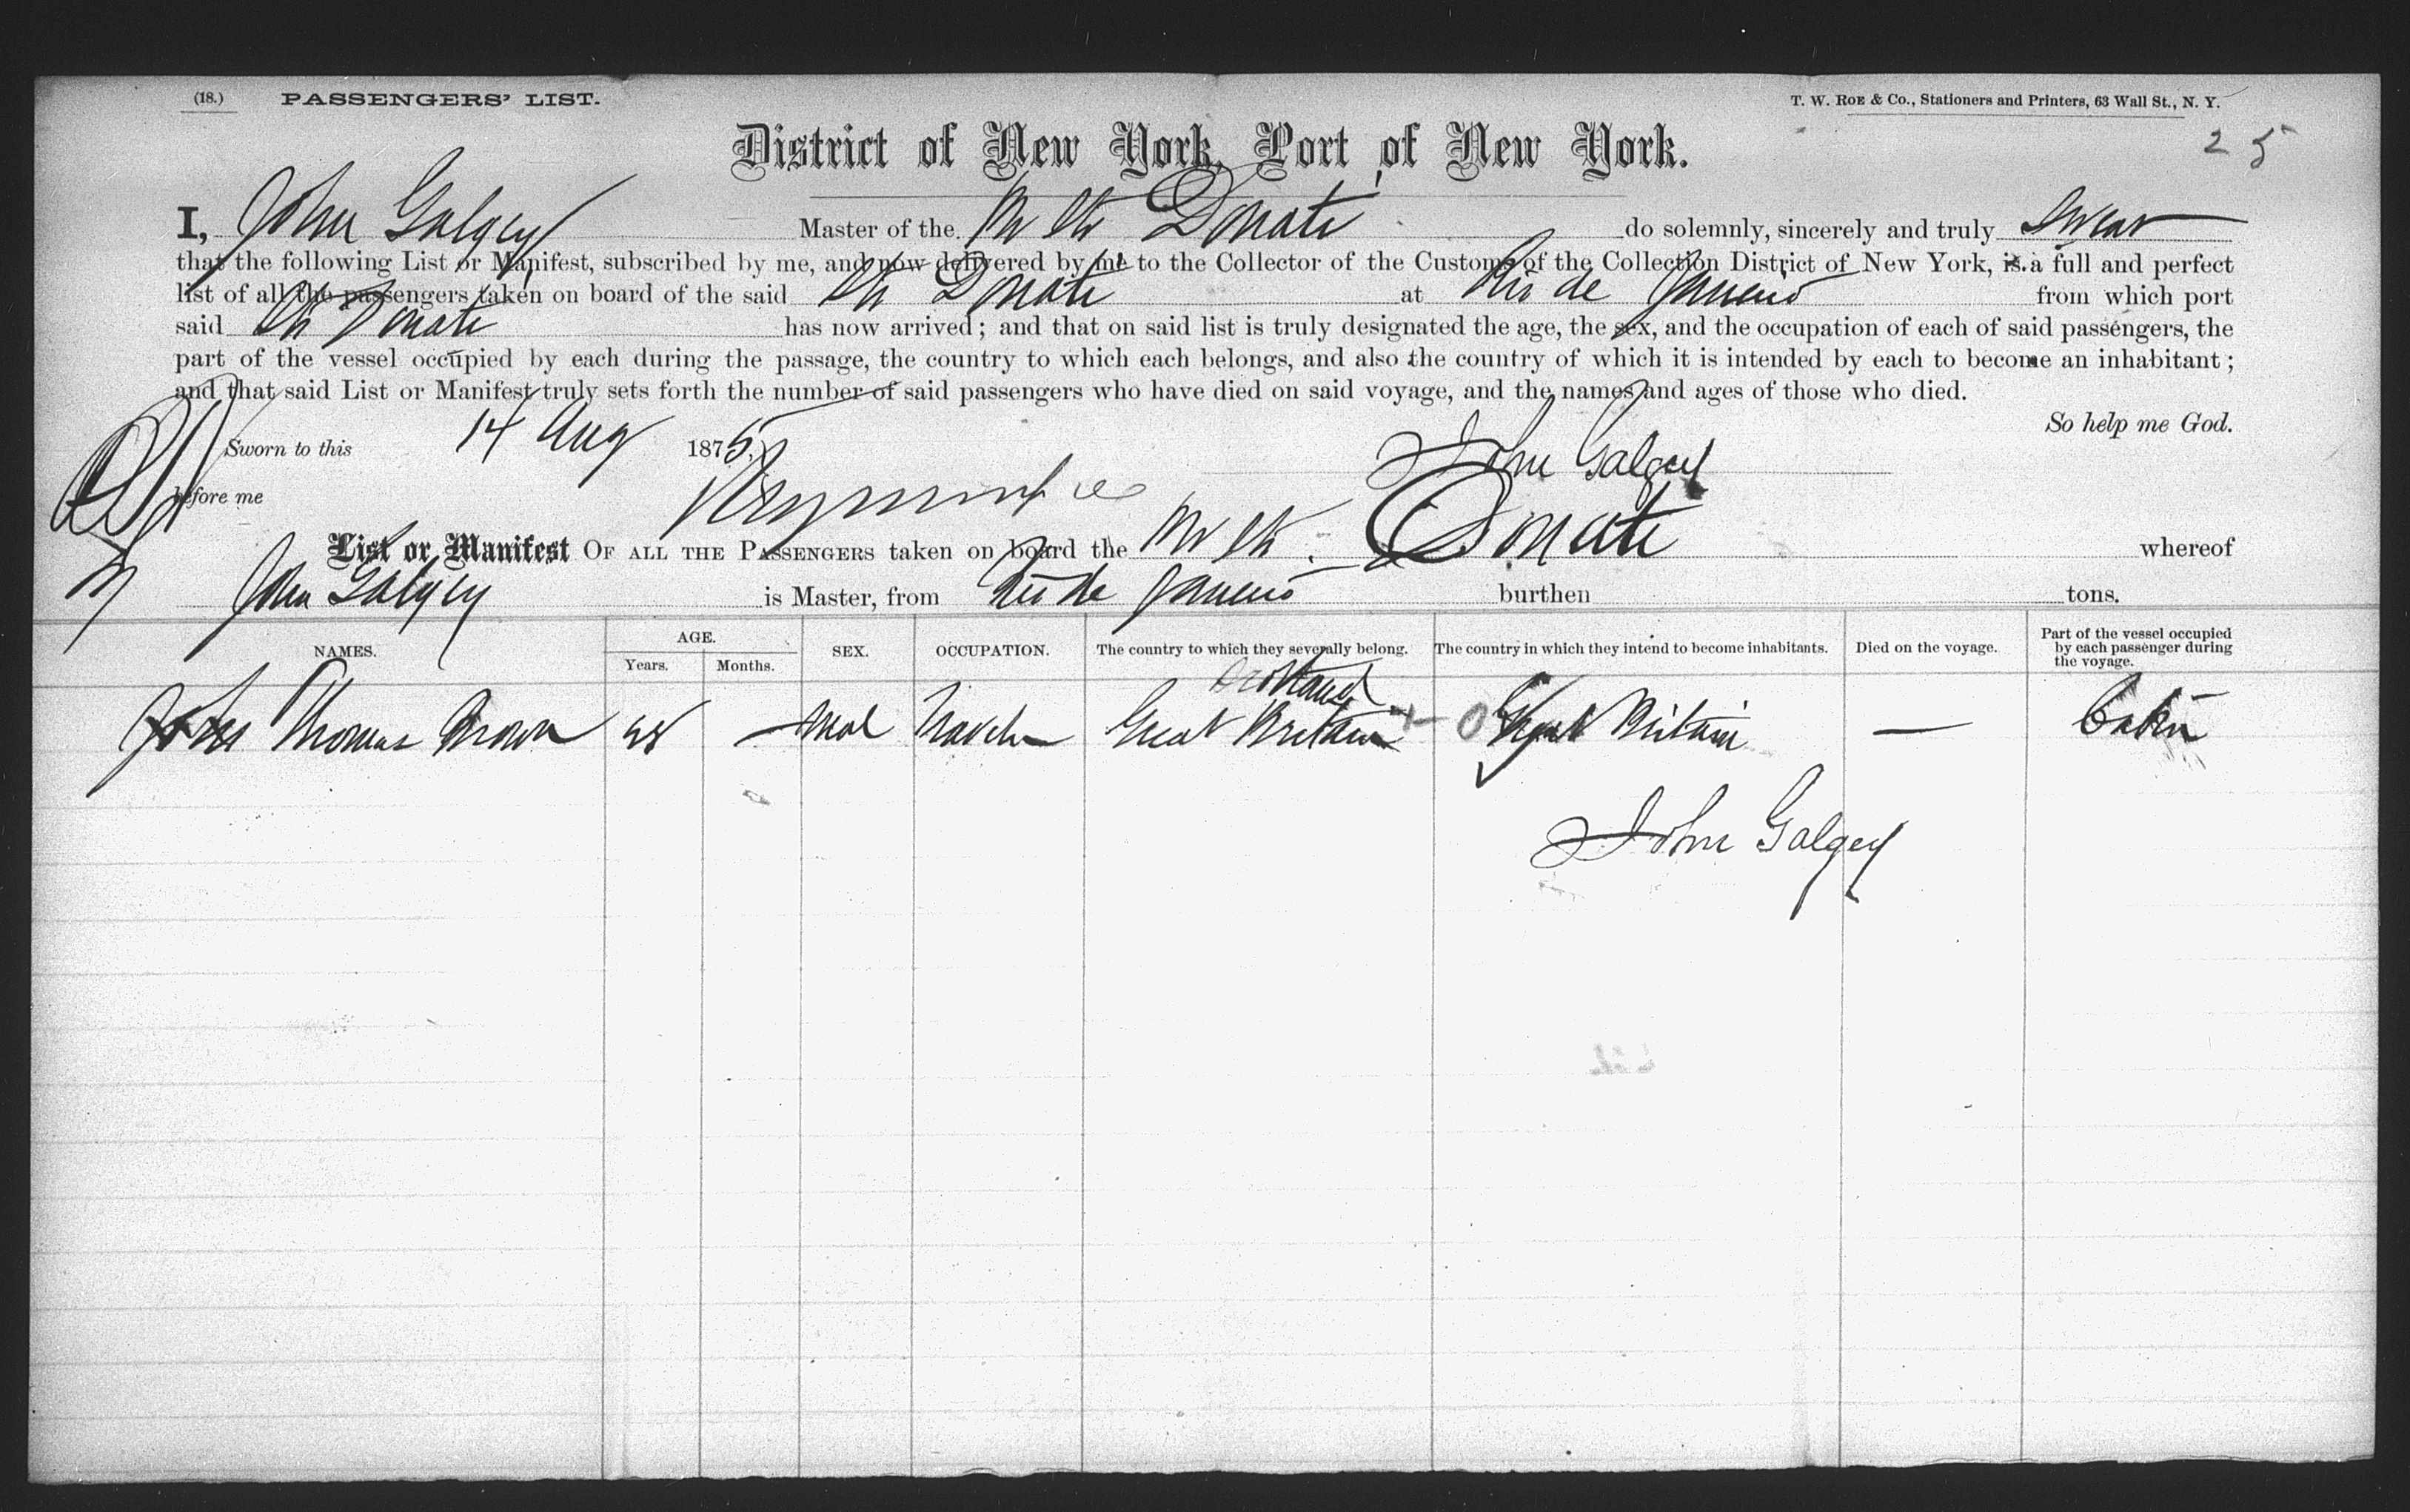 (18.) PASSENGERS' LIST. T. W. ROE & Co., Stationers and Printers, 63 Wall St., N. Y.
25
District of New York, Port of New York.
I, John Galgey Master of the Donati do solemnly, sincerely and truly swear
that the following List or Manifest, subscribed by me, and now delivered by me to the Collector of the Customs of the Collection District of New York, is a full and perfect
list of all the passengers taken on board of the said Donati at Rio de Janeiro from which port
said Donati has now arrived; and that on said list is truly designated the age, the sex, and the occupation of each of said passengers, the
part of the vessel occupied by each during the passage, the country to which each belongs, and also the country of which it is intended by each to become an inhabitant;
and that said List or Manifest truly sets forth the number of said passengers who have died on said voyage, and the names and ages of those who died.
So help me God.
Sworn to this 14 Aug 1875, John Galgey
before me
List or Manifest OF ALL THE PASSENGERS taken on board the Donati whereof
John Galgey is Master, from Rio de Janeiro burthen tons.
NAMES. AGE. Years. Months. SEX. OCCUPATION. The country to which they severally belong. The country in which they intend to become inhabitants. Died on the voyage. Part of the vessel occupied by each passenger during the voyage.
Scotland
Thomas Brown 28 — Mal Great Britain Great Britain — Cabin
John Galgey